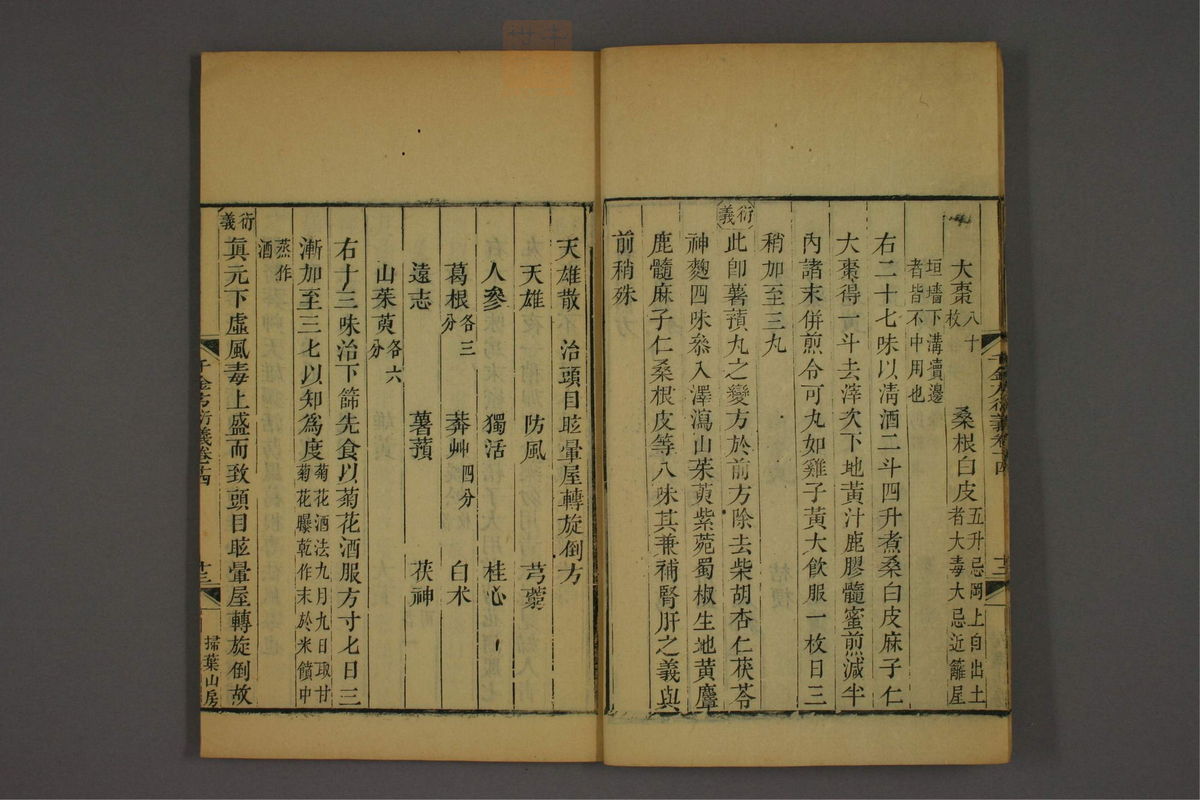 大棗八十枚　桑根白皮五升忌岡上自出土者大毒大忌近籬屋
垣墻下溝瀆邊者皆不中用也
右二十七味以淸酒二斗四升煮桑白皮麻子仁
大棗得一斗去滓次下地黃汁鹿膠髓蜜煎減半
內諸末併煎令可丸如雞子黃大飮服一枚日三
稍加至三丸
衍義
此卽薯蕷丸之變方於前方除去柴胡杏仁茯苓
神麴四味叅入澤瀉山茱萸紫菀蜀椒生地黃麞
鹿髓麻子仁桑根皮等八味其兼補腎肝之義與
前稍殊
天雄散　治頭目眩暈屋轉旋倒方
天雄　防風　芎藭
人參　獨活　桂心
葛根各三分　莽艸四分　白朮
遠志　薯蕷　茯神
山茱萸各六分
右十三味治下篩先食以菊花酒服方寸七日三
漸加至三七以知爲度菊花酒法九月九日取甘菊花曝乾作末於米饙中
蒸作酒
衍義
眞元下虛風毒上盛而致頭目眩暈屋轉旋倒故
千金方衍義卷十四
十三
掃葉山房